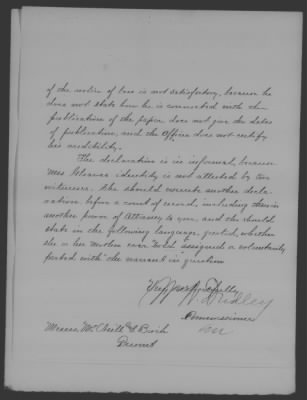 of the notice of loss is not satisfactory, because he
does not state how he is connected with the
publication of the paper, does not give the dates
of publication, and the Officer does not certify
his credibility.
The declaration is informal, because
Mrs identity is not attested by two
witnesses. She should execute another decla-
ration before a court of record, including therein
another power of Attorney to you, and she should
state in the following language, quoted, whether
she or her mother ever "sold assigned or voluntarily
parted with" the warrant in question
Very respectfully
Commissioner
Messrs Mc & Birch
Present